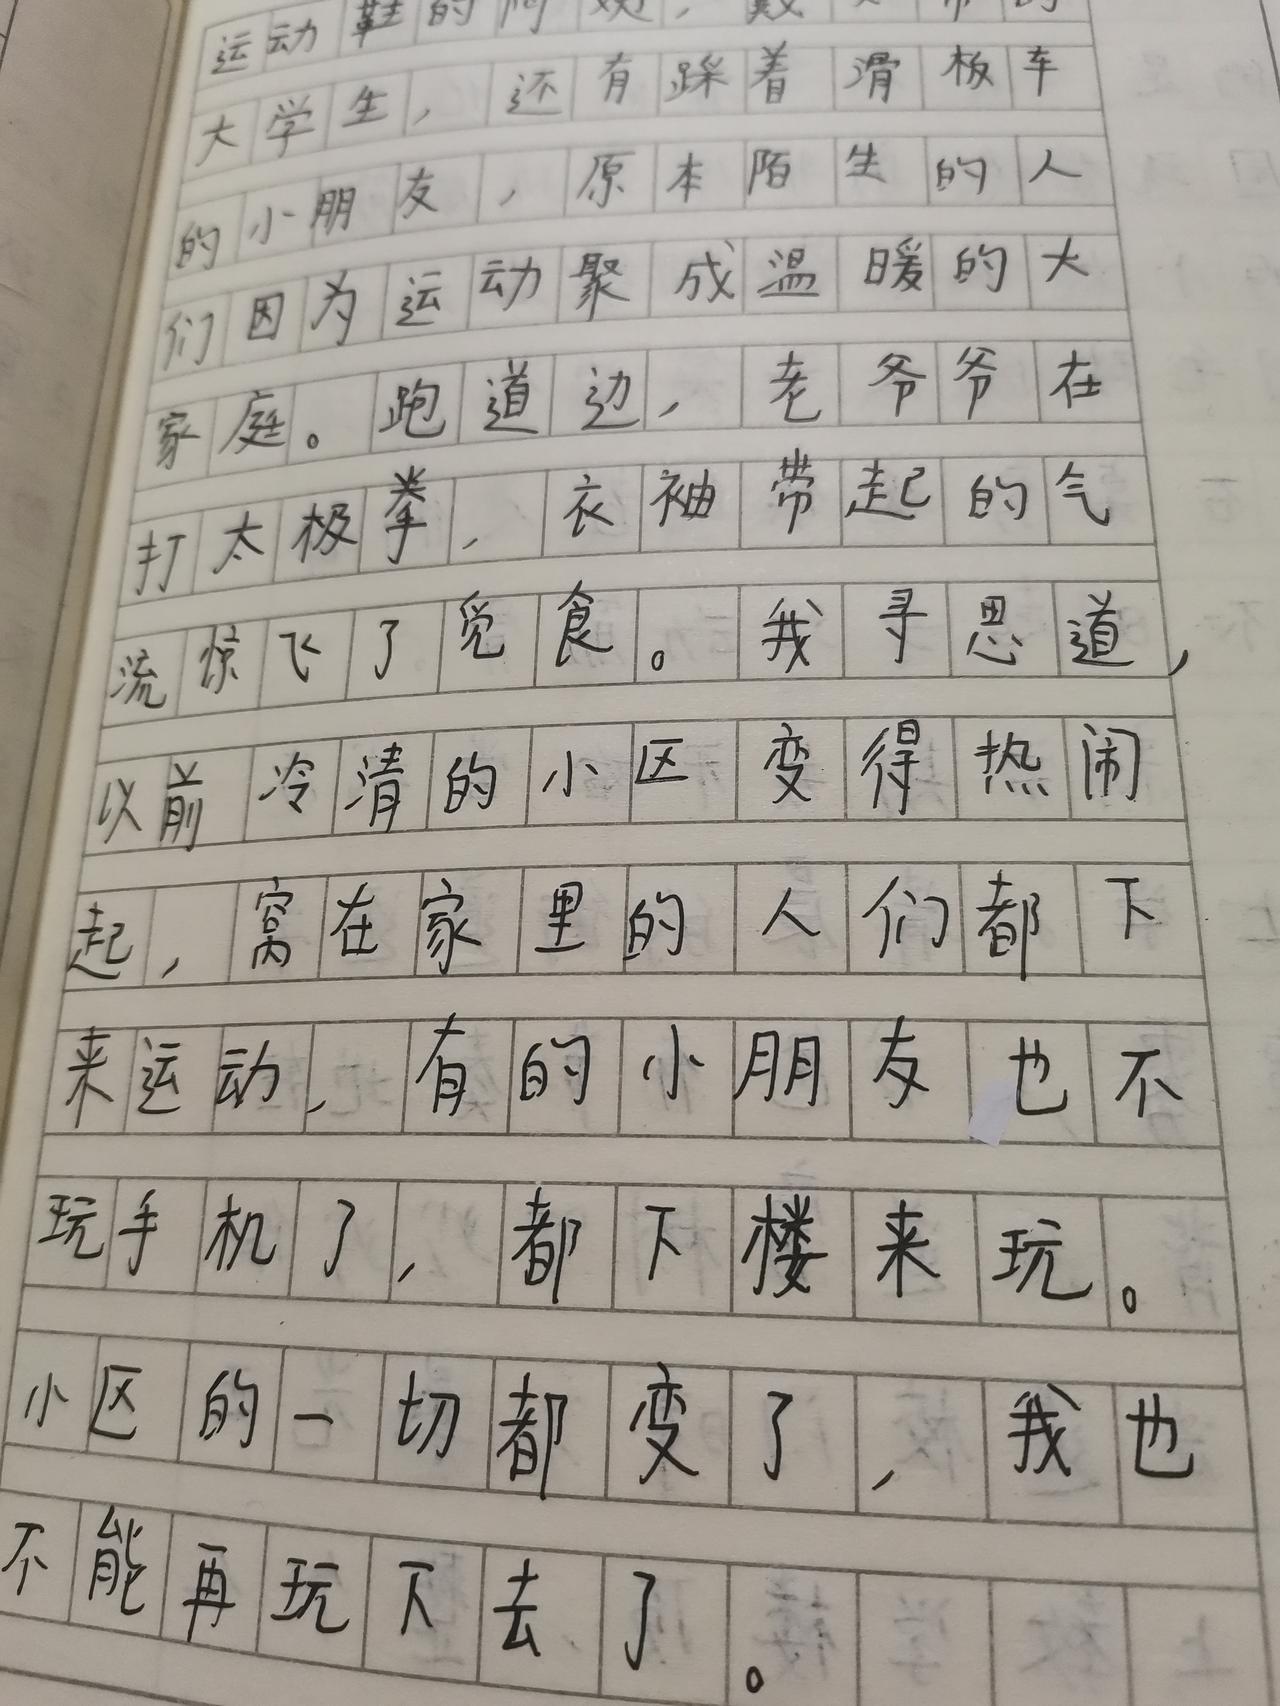 运动鞋的阿姨，戴
大学生，还有踩着滑板车
的小朋友，原本陌生的人
们因为运动聚成温暖的大
家庭。跑道边，老爷爷在
打太极拳，衣袖带起的气
流惊飞了觅食。我寻思道，
以前冷清的小区变得热闹
起，窝在家里的人们都下
来运动，有的小朋友也不
玩手机了，都下楼来玩。
小区的一切都变了，我也
不能再玩下去了。